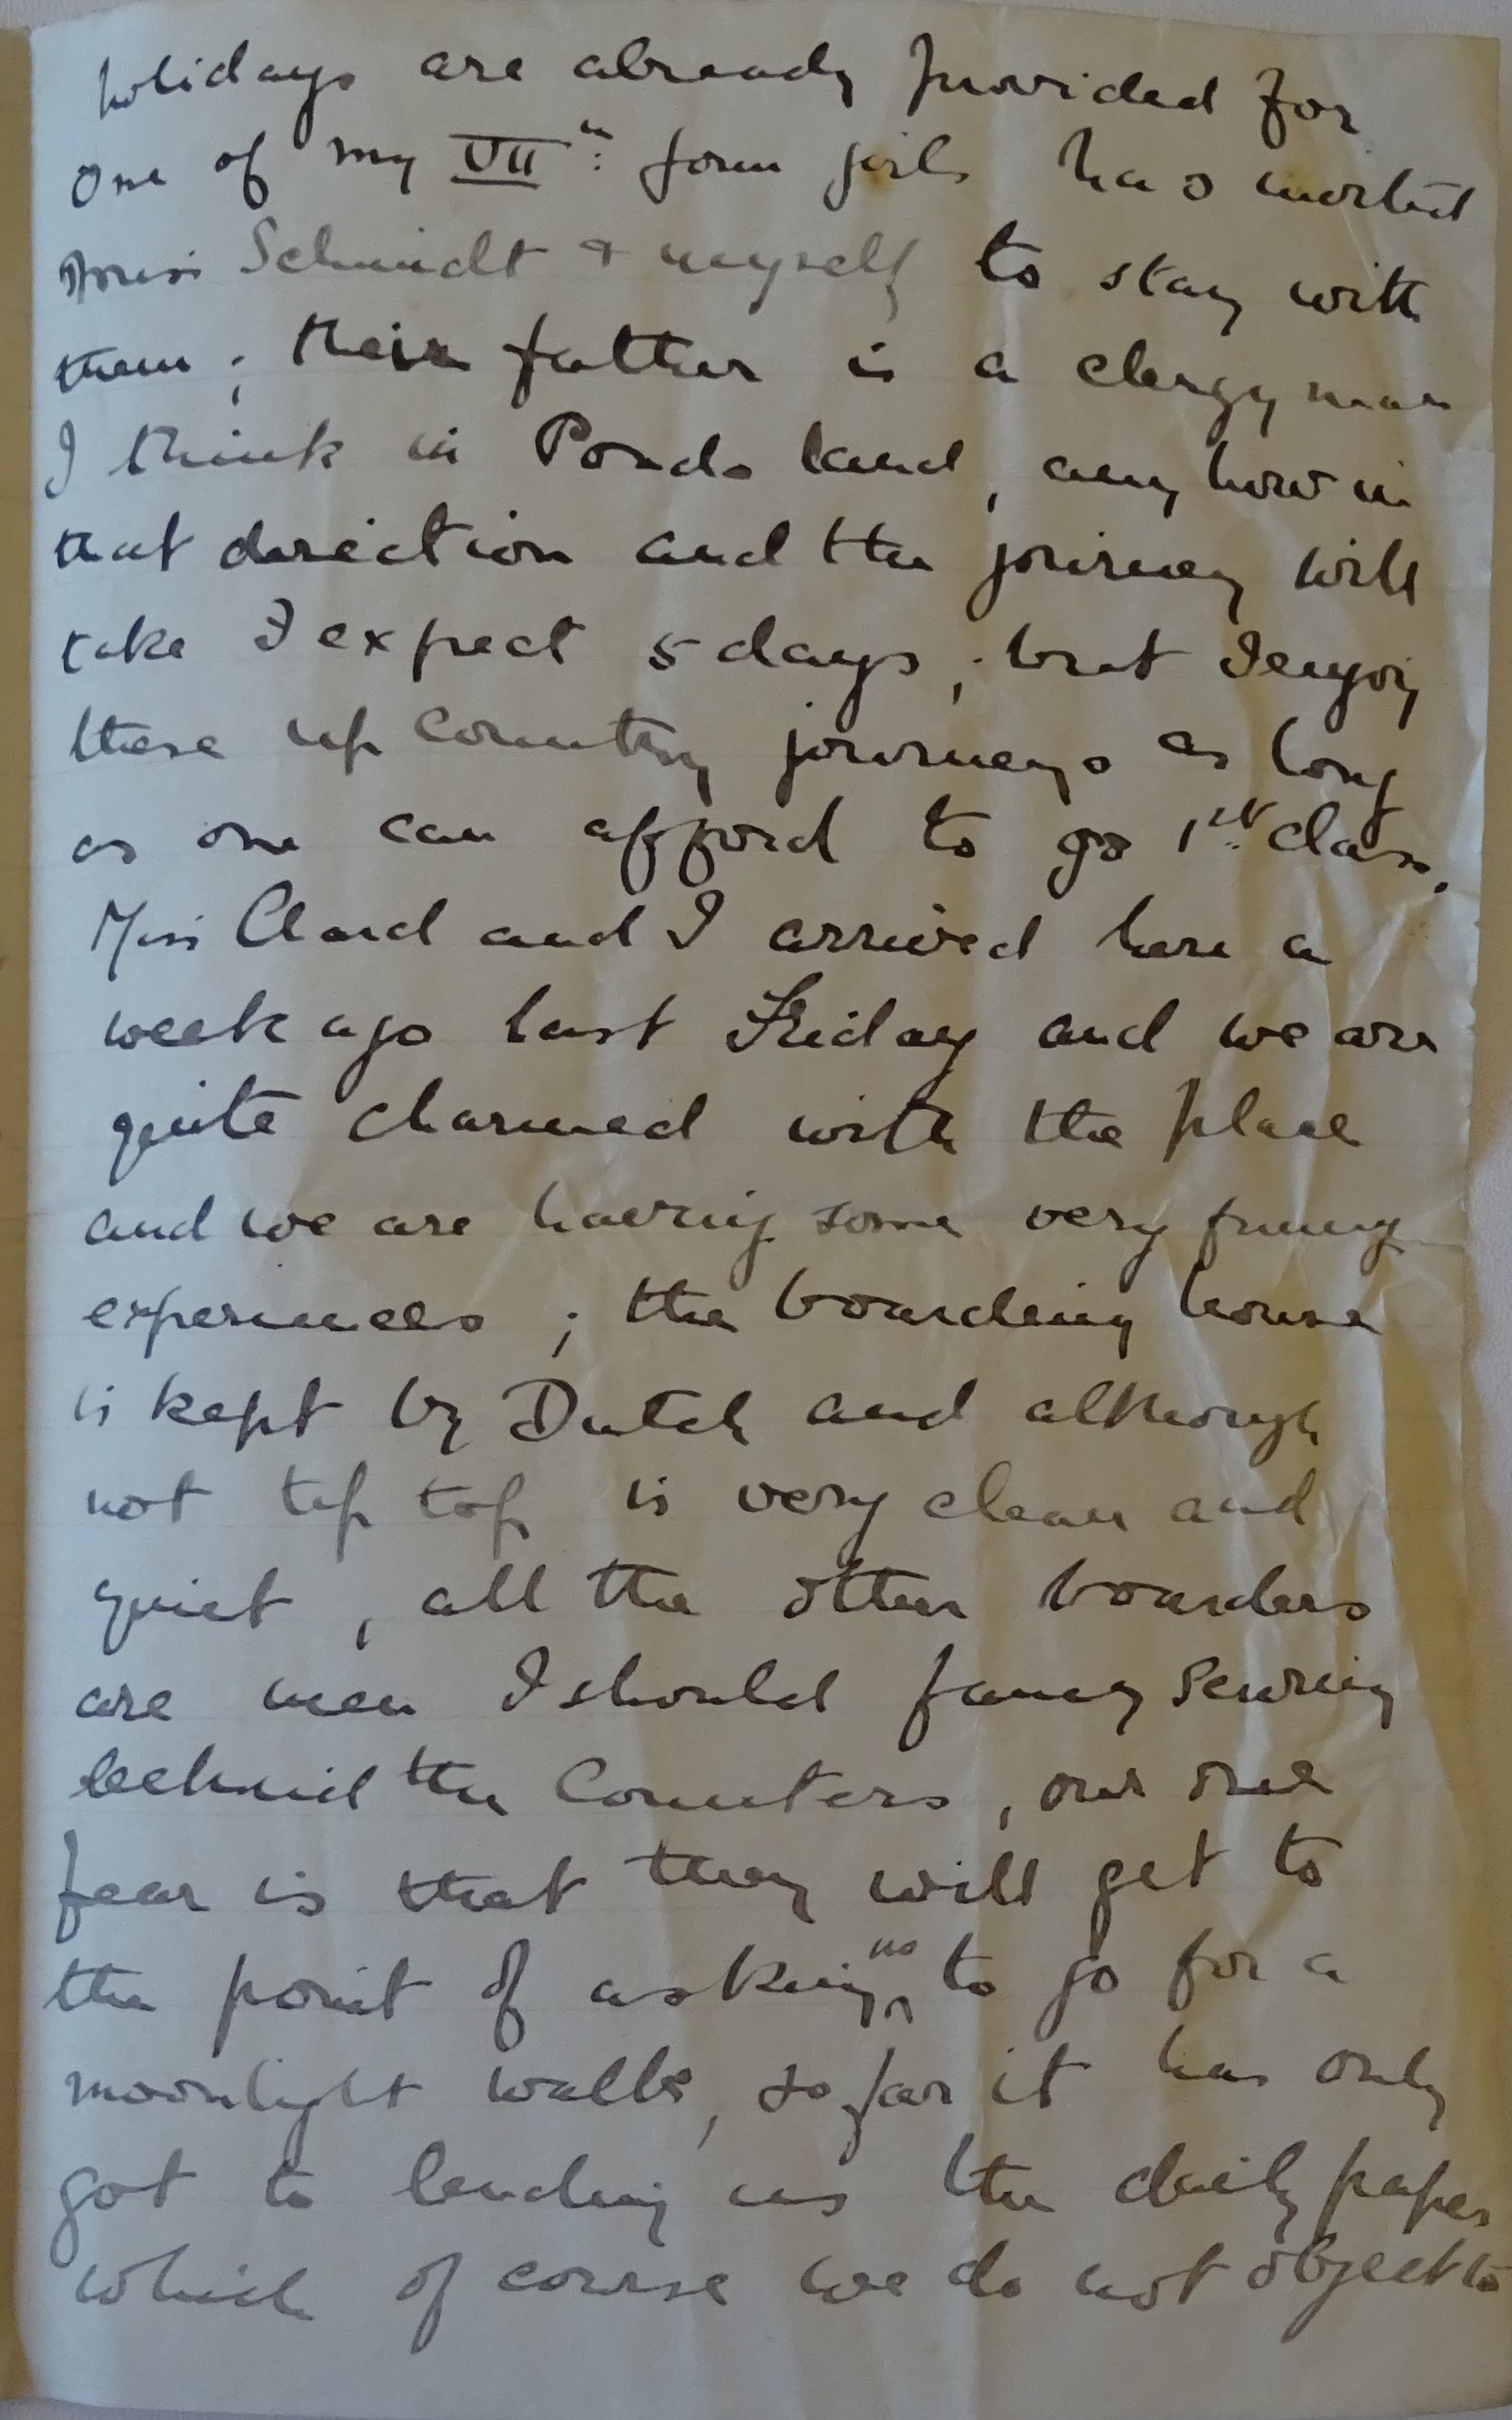 holidays are already provided for
One of my VII th form girls has invited
Miss Schmidt & myself to stay with
them; their father is a clergyman
I think in Pondo land, anyhow in
that direction and the journey will
take I expect 5 days; but I enjoy
these up country journeys as long
as one can afford to go 1st class.
Miss and I arrived here a
week ago last Friday and we are
quite charmed with the place
and we are having some very funny
experiences; the boarding house
is kept by Dutch and although
not tip top is very clean and
quiet, all the other boarders
are men I should fancy serving
behind the Counters, our one
fear is that they will get to
the point of asking us to go for a
moonlight walk, so far it has only
got to lending us the daily paper
which of course we do not object to